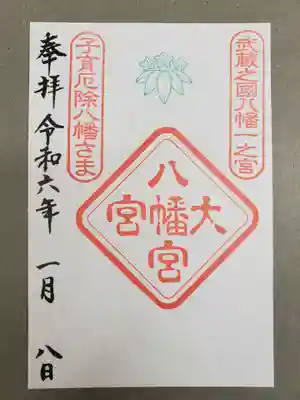 武蔵之國八幡一之宮
大宮八幡宮
子育厄除八幡さま
奉拝 令和六年 一月 八日